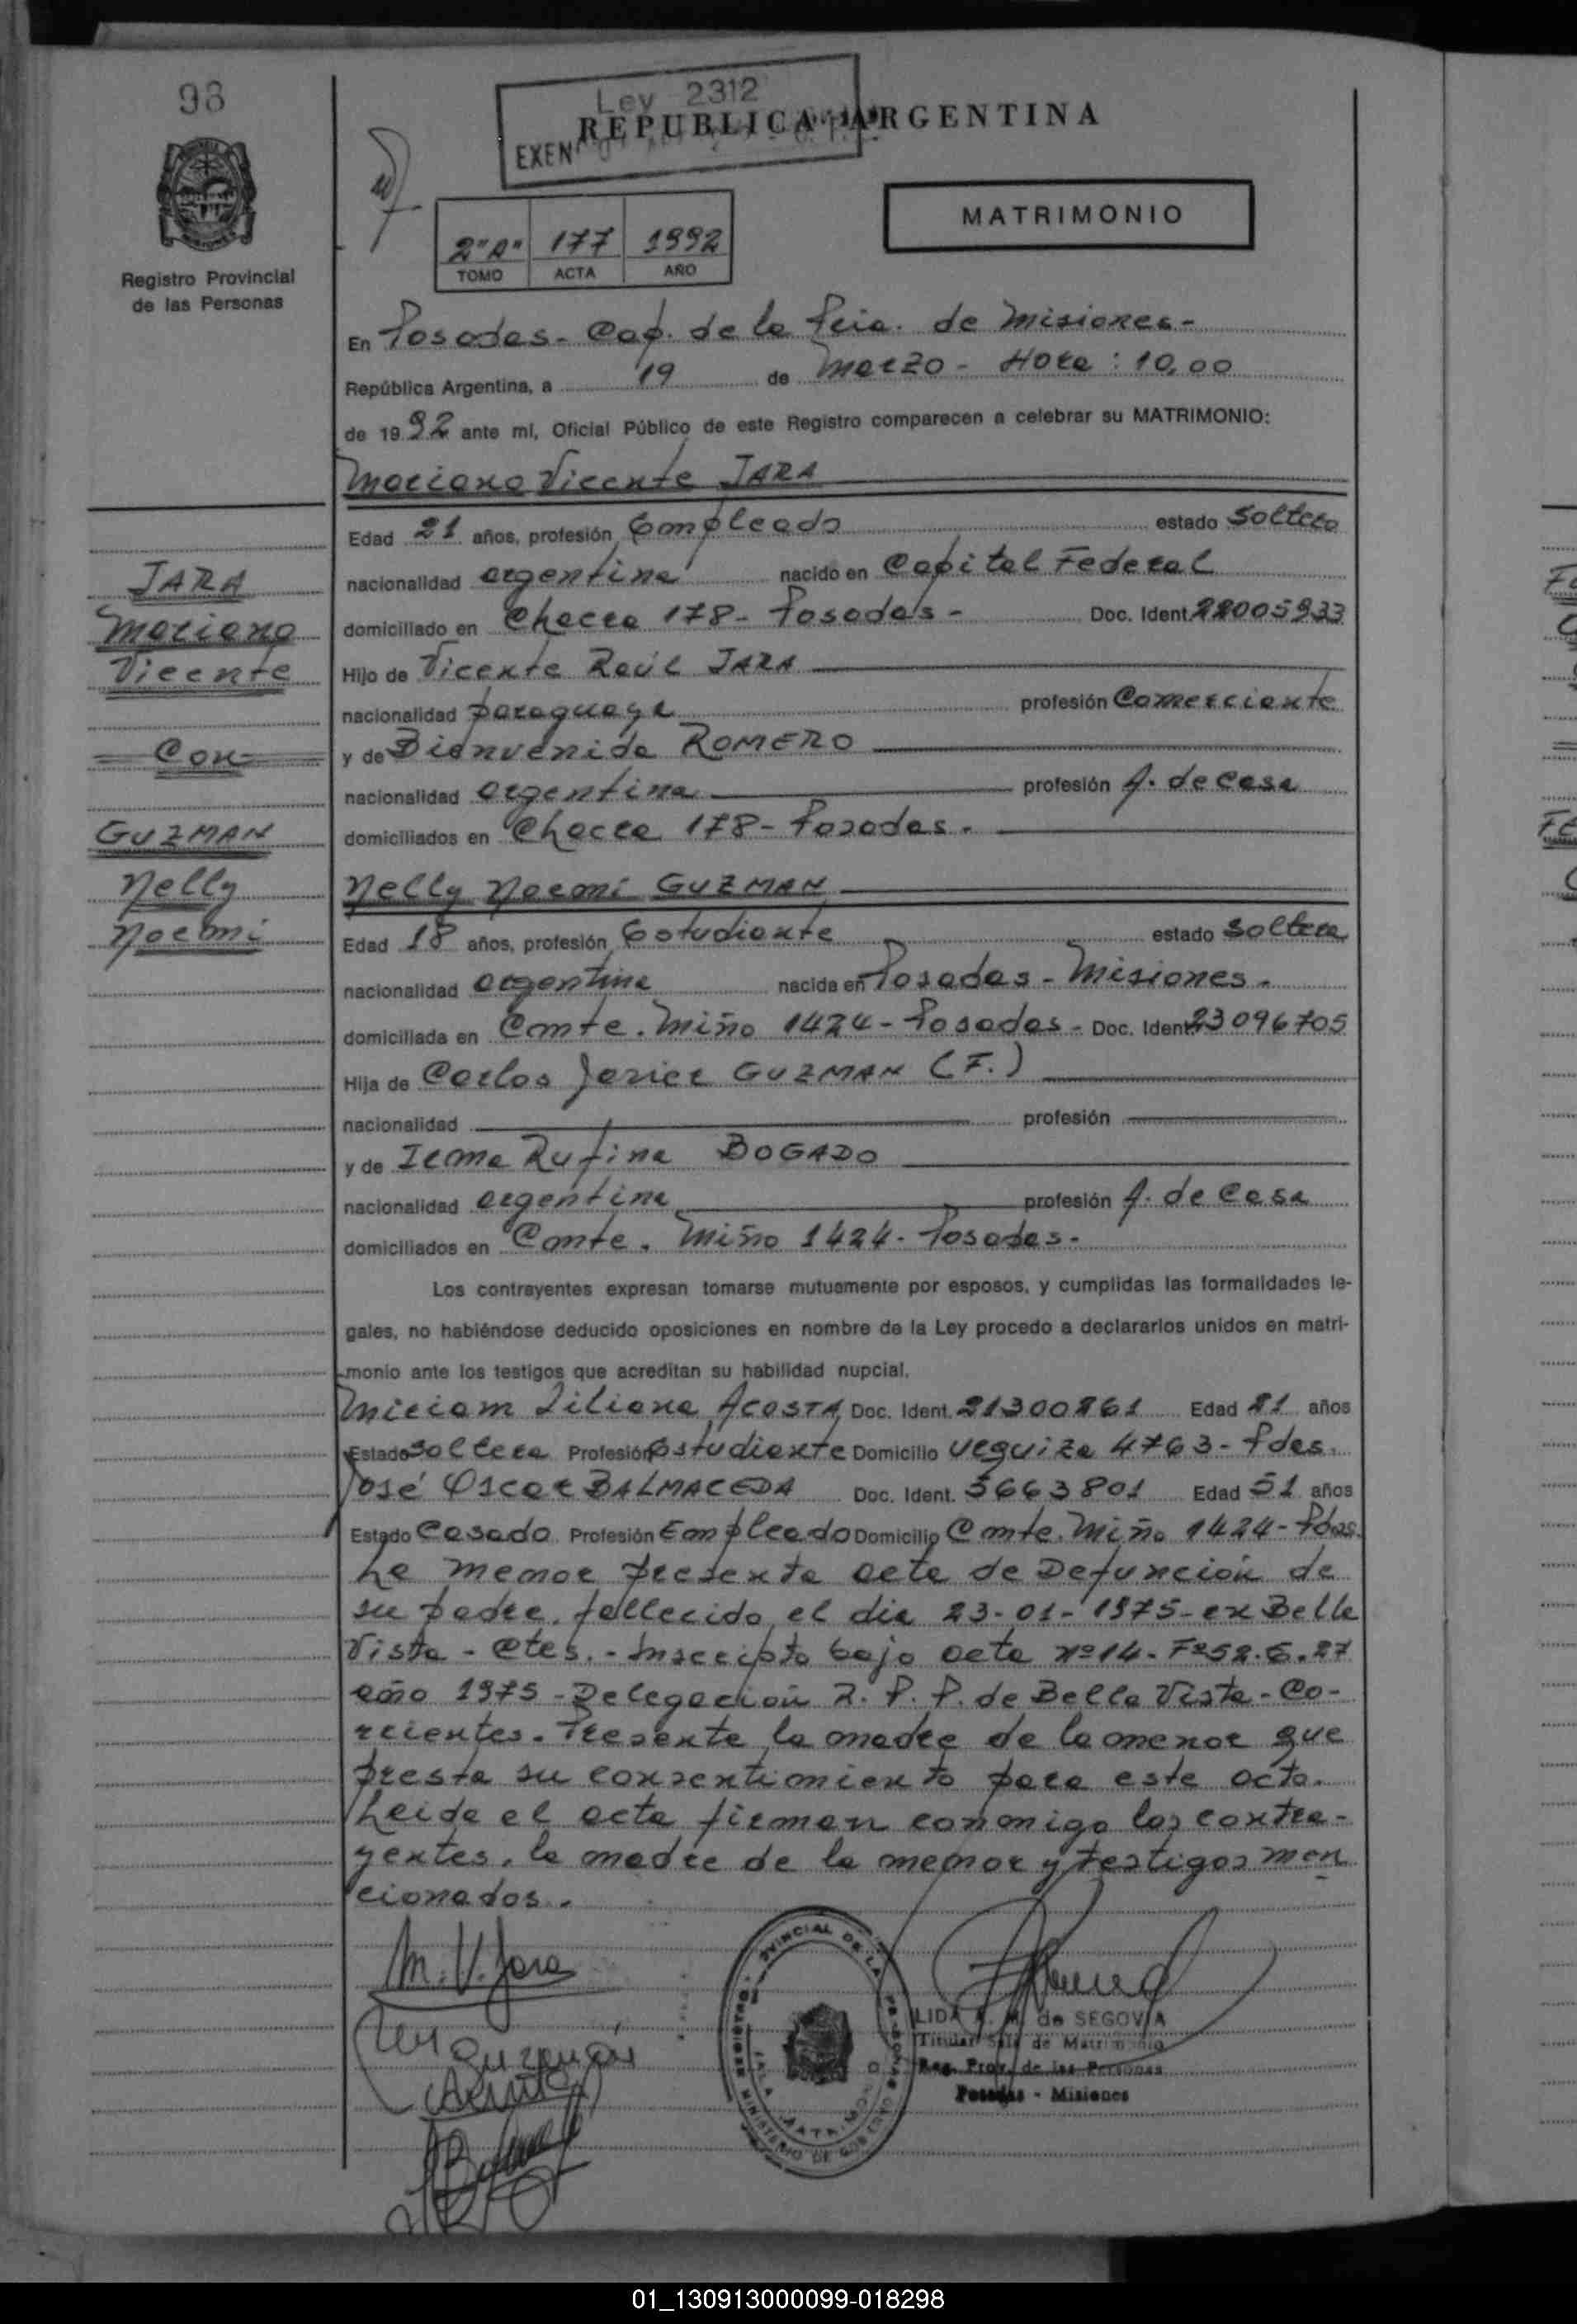 98
Ley 2312
REPUBLICA ARGENTINA
EXEN
MATRIMONIO
2"A" 177 1992
TOMO ACTA AÑO
Registro Provincial
de las Personas
En Posadas - Cap. de la Pcia. de Misiones -
República Argentina, a 19 de Marzo - Hora: 10,00
de 1992 ante mí, Oficial Público de este Registro comparecen a celebrar su MATRIMONIO:
Mariano Vicente JARA
Edad 21 años, profesión Empleado estado Soltero
nacionalidad argentina nacido en Capital Federal
domiciliado en Chacra 178 - Posadas - Doc. Ident. 22005933
Hijo de Vicente Raúl JARA
nacionalidad paraguaya profesión Comerciante
y de Bienvenida ROMERO
nacionalidad argentina profesión A. de casa
domiciliados en Chacra 178 - Posadas.
JARA
Mariano
Vicente
Con
GUZMAN
Nelly
Noemi
Nelly Noemi GUZMAN
Edad 18 años, profesión Estudiante estado Soltera
nacionalidad argentina nacida en Posadas - Misiones.
domiciliada en Cmte. Miño 1424 - Posadas - Doc. Ident. 23096705
Hija de Carlos Javier GUZMAN (F.)
nacionalidad profesión
y de Irma Rufina BOGADO
nacionalidad argentina profesión A. de Casa
domiciliados en Cmte. Miño 1424 - Posadas.
Los contrayentes expresan tomarse mutuamente por esposos, y cumplidas las formalidades le-
gales, no habiéndose deducido oposiciones en nombre de la Ley procedo a declararlos unidos en matri-
monio ante los testigos que acreditan su habilidad nupcial.
Miriam Liliana ACOSTA Doc. Ident. 21300861 Edad 21 años
Estado Soltera Profesión Estudiante Domicilio Urquiza 4763 - Pdas.
José Oscar BALMACEDA Doc. Ident. 5663801 Edad 51 años
Estado Casado Profesión Empleado Domicilio Cmte. Miño 1424 - Pdas.
La menor presenta acta de Defunción de
su padre, fallecido el dia 23-01-1975 - en Bella
Vista - Ctes. - Inscripto bajo acta Nº 14 - Fº 52. 27
año 1975 - Delegación R. P. P. de Bella Vista - Co-
rrientes. Presente la madre de la menor que
presta su consentimiento para este acto.
Leida el acta firman conmigo los contra-
yentes, la madre de la menor y testigos men
cionados.
M. V. Jara
LIDA A. M. de SEGOVIA
Titular Sala de Matrimonio
Reg. Prov. de las Personas
Posadas - Misiones
01_130913000099-018298